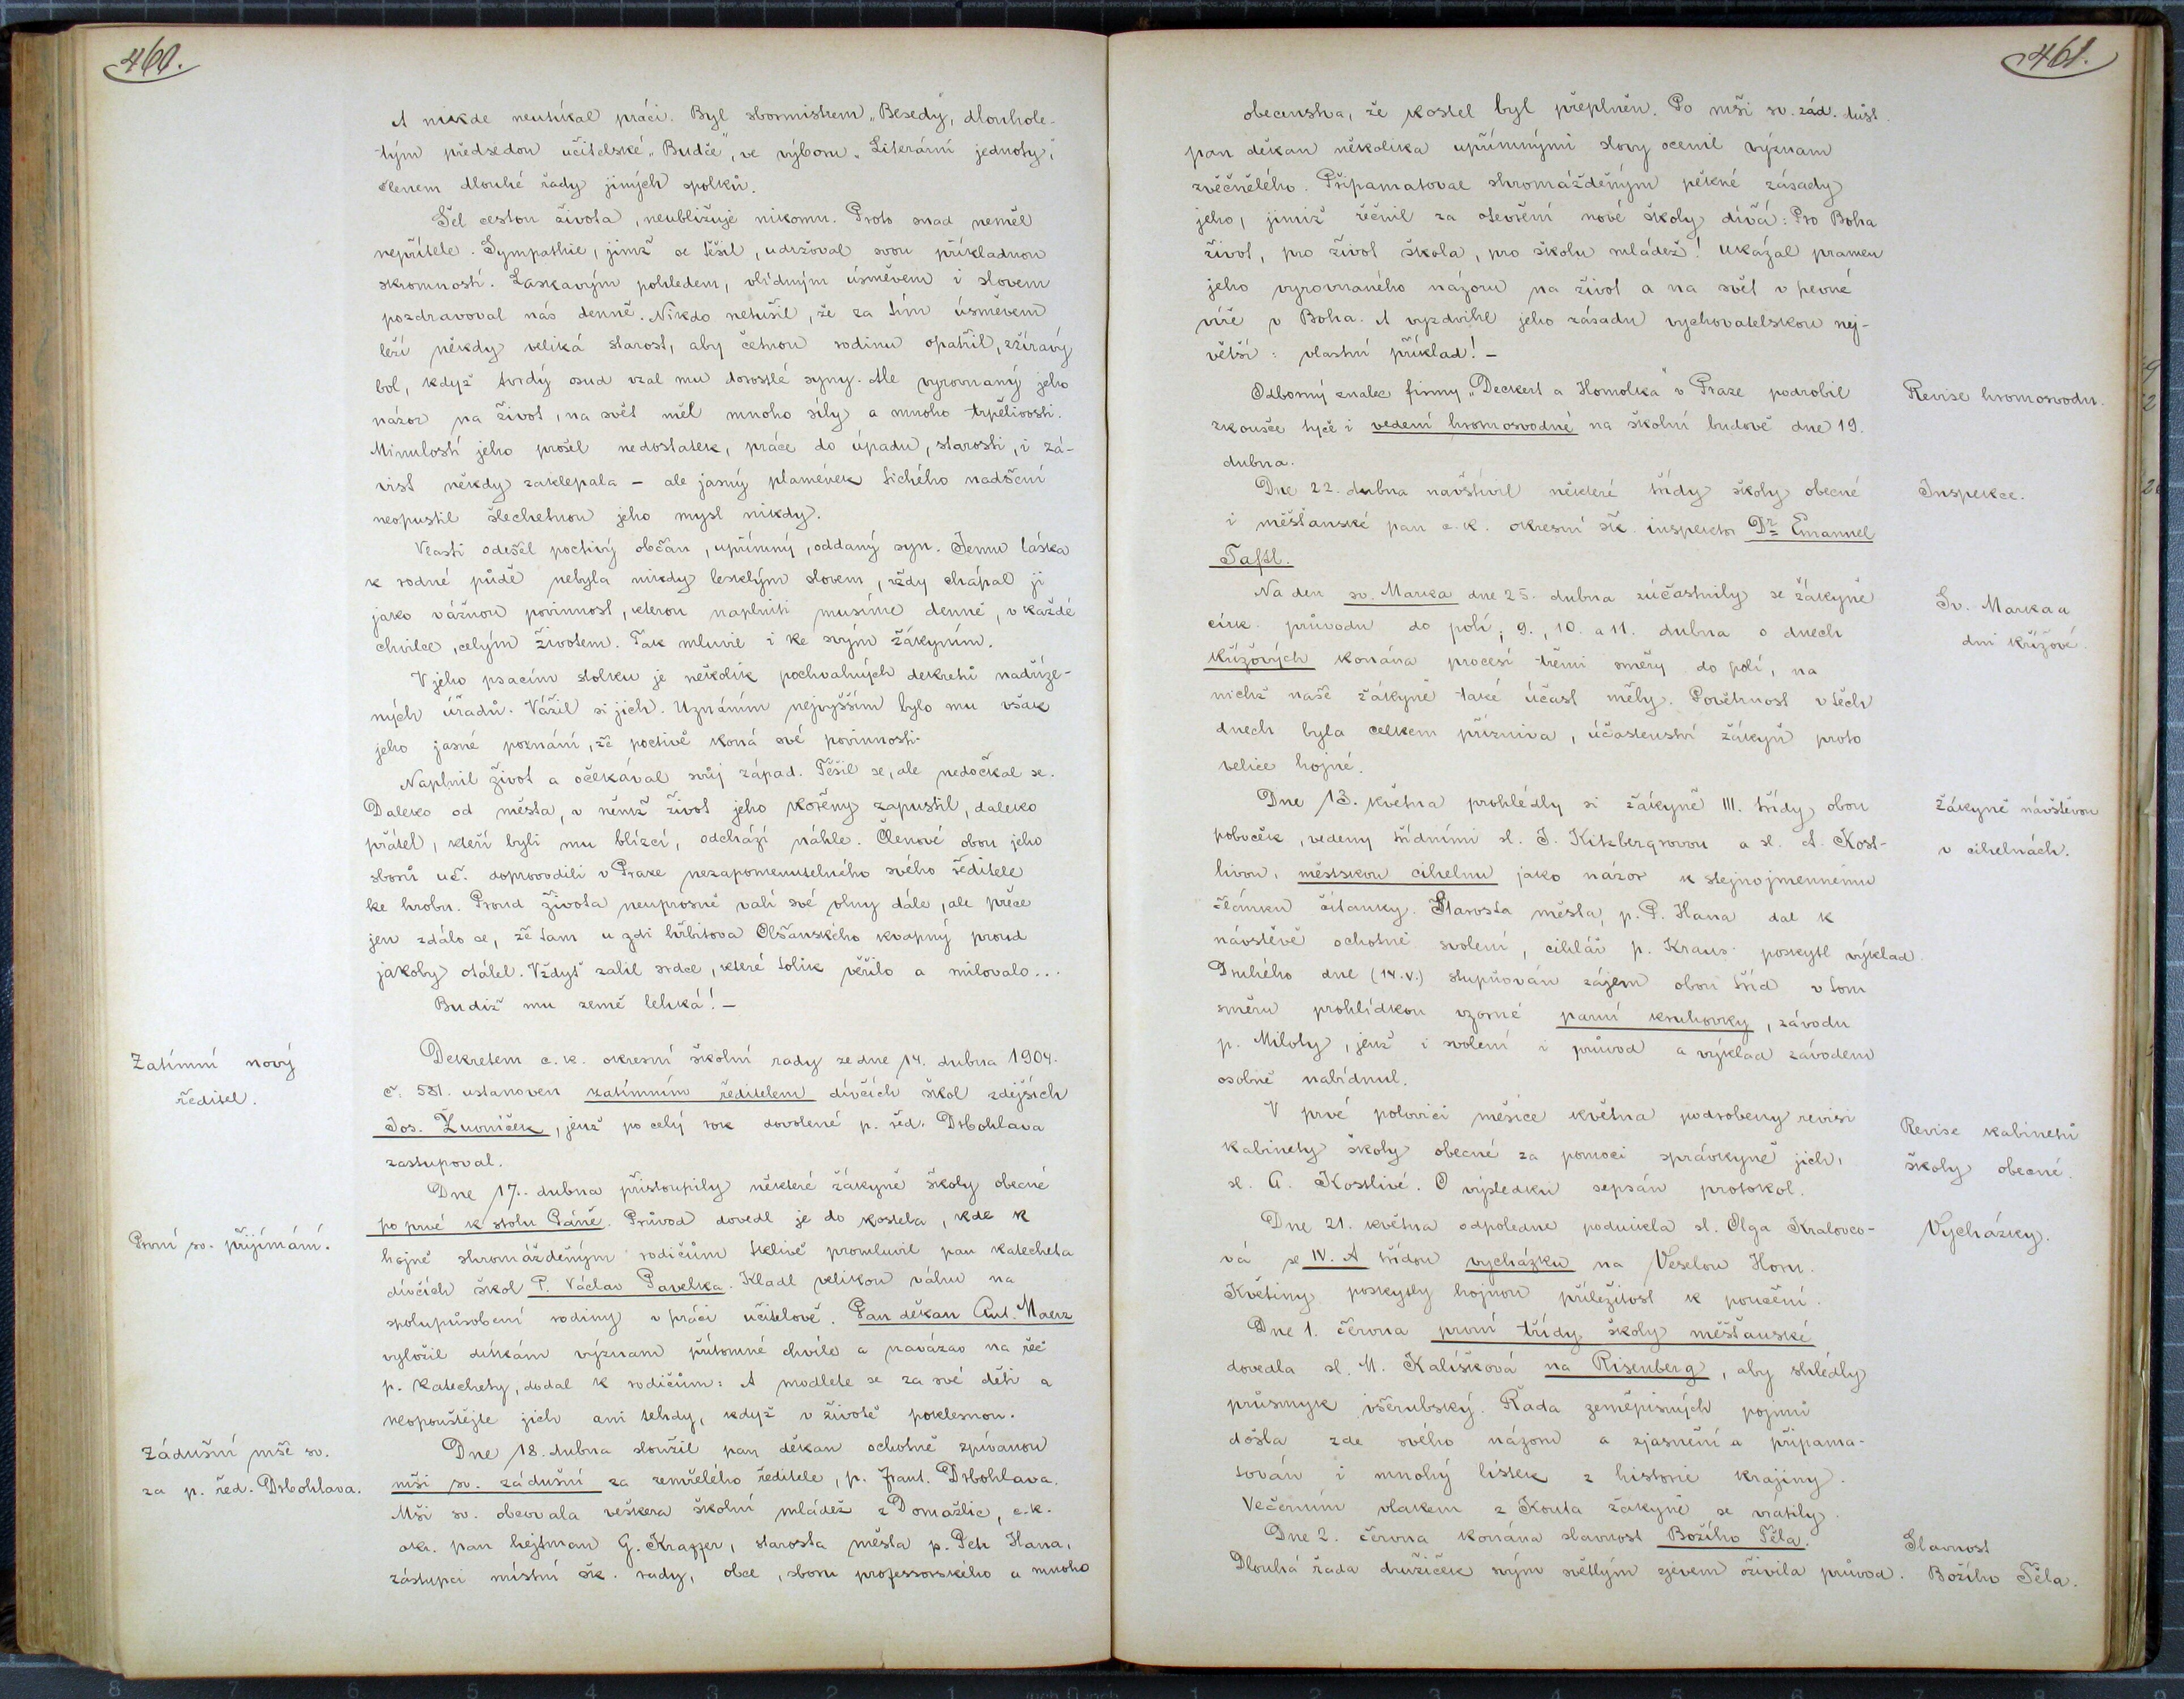 460.
A nikde neutíkal práci. Byl sbormistrem „Besedy, dlouhole-
tým předsedou učitelské „Budče", ve výboru „Literární jednoty,"
členem dlouhé řady jiných spolků.
Šel cestou života, neubližuje nikomu. Proto snad neměl
nepřítele. Sympathie, jimž se těšil, udržoval svou příkladnou
skromností. Laskavým pohledem, vlídným úsměvem i slovem
pozdravoval nás denně. Nikdo netušil, že za tím úsměvem
leží někdy veliká starost, aby četnou rodinu opatřil, zžíravý
bol, když tvrdý osud vzal mu dorostlé syny. Ale vyrovnaný jeho
názor na život, na svět měl mnoho síly a mnoho trpělivosti.
Minulostí jeho prošel nedostatek, práce do úpadu, starosti, i zá-
vist někdy zaklepala – ale jasný plamének tichého nadšení
neopustil šlechetnou jeho mysl nikdy.
Vlasti odešel poctivý občan, upřímný, oddaný syn. Jemu láska
k rodné půdě nebyla nikdy lesklým slovem, vždy chápal ji
jako vážnou povinnost, kterou naplniti musíme denně, v každé
chvilce, celým životem. Tak mluvil i ke svým žákyním.
V jeho psacím stolku je několik pochvalných dekretů nadříze-
ných úřadů. Vážil si jich. Uznáním nejvyšším bylo mu však
jeho jasné poznání, že poctivě koná své povinnosti.
Naplnil život a očekával svůj západ. Těšil se, ale nedočkal se.
Daleko od města, v němž život jeho kořeny zapustil, daleko
přátel, kteří byli mu blízcí, odchází náhle. Členové obou jeho
sborů uč. doprovodili v Praze nezapomenutelného svého ředitele
ke hrobu. Proud života neuprosně valí své vlny dále, ale přece
jen zdálo se, že tam u zdi hřbitova Olšanského kvapný proud
jakoby otálel. Vždyť zalil srdce, které tolik věřilo a milovalo...
Budiž mu země lehká! –
Zatímní nový
ředitel.
Dekretem c. k. okresní školní rady ze dne 14. dubna 1904.
č. 581. ustanoven zatímním ředitelem dívčích škol zdejších
Jos. Zvoníček, jenž po celý rok dovolené p. řed. Drbohlava
zastupoval.
První sv. přijímání.
Dne 17. dubna přistoupily některé žákyně školy obecné
po prvé k stolu Páně. Průvod dovedl je do kostela, kde k
hojně shromážděným rodičům tklivě promluvil pan katecheta
dívčích škol P. Václav Pavelka. Kladl velikou váhu na
spolupůsobení rodiny v práci učitelově. Pan děkan Ant. Maerz
vyložil dítkám význam přítomné chvíle a navázav na řeč
p. katechety, dodal k rodičům: A modlete se za své děti a
neopouštějte jich ani tehdy, když v životě poklesnou.
Zádušní mše sv.
za p. řed. Drbohlava.
Dne 18. dubna sloužil pan děkan ochotně zpívanou
mši sv. zádušní za zemřelého ředitele, p. Frant. Drbohlava.
Mši sv. obcovala veškera školní mládež z Domažlic, c. k.
okr. pan hejtman G. Krapper, starosta města p. Petr Hana,
zástupci místní šk. rady, obce, sboru professorského a mnoho
461.
obecenstva, že kostel byl přeplněn. Po mši sv. zád. důst.
pan děkan několika upřímnými slovy ocenil význam
zvěčnělého. Připamatoval shromážděným pěkné zásady
jeho, jimiž řečnil za otevření nové školy dívčí: Pro Boha
život, pro život škola, pro školu mládež! Ukázal pramen
jeho vyrovnaného názoru na život a na svět v pevné
víře v Boha. A vyzdvihl jeho zásadu vychovatelskou nej-
větší: vlastní příklad! –
Revise hromosvodu.
Odborný znalec firmy „Deckert a Homolka" v Praze podrobil
zkoušce tyče i vedení hromosvodné na školní budově dne 19.
dubna.
Inspekce.
Dne 22. dubna navštívil některé třídy školy obecné
i měšťanské pan c. k. okresní šk. inspektor Dr Emanuel
Taftl.
Sv. Marka a
dni křížové.
Na den sv. Marka dne 25. dubna zúčastnily se žákyně
círk. průvodu do polí; 9., 10. a 11. dubna o dnech
křížových konána procesí třemi směry do polí, na
nichž naše žákyně také účast měly. Povětrnost v těch
dnech byla celkem příznivá, účastenství žákyň proto
velice hojné.
Žákyně návštěvou
v cihelnách.
Dne 13. května prohlédly si žákyně III. třídy obou
poboček, vedeny třídními sl. J. Kitzbergrovou a sl. A. Kost-
livou, městskou cihelnu jako názor k stejnojmennému
článku čítanky. Starosta města, p. P. Hana dal k
návštěvě ochotně svolení, cihlář p. Kraus poskytl výklad.
Druhého dne (14.V.) stupňován zájem obou tříd v tom
směru prohlídkou vzorné parní kruhovky, závodu
p. Miloty, jenž i svolení i průvod a výklad závodem
osobně nabídnul.
Revise kabinetů
školy obecné.
V prvé polovici měsíce května podrobeny revisi
kabinety školy obecné za pomoci správkyně jich,
sl. A. Kostlivé. O výsledku sepsán protokol.
Vycházky.
Dne 21. května odpoledne podnikla sl. Olga Kralovco-
vá se IV. A třídou vycházku na Veselou Horu.
Květiny poskytly hojnou příležitost k poučení.
Dne 1. června první třídy školy měšťanské
dovedla sl. M. Kalíšková na Risenberg, aby shlédly
průsmyk všerubský. Řada zeměpisných pojmů
došla zde svého názoru a zjasnění a připama-
tován i mnohý lístek z historie krajiny.
Večerním vlakem z Kouta žákyně se vrátily.
Slavnost
Božího Těla.
Dne 2. června konána slavnost Božího Těla.
Dlouhá řada družiček svým světlým zjevem oživila průvod.